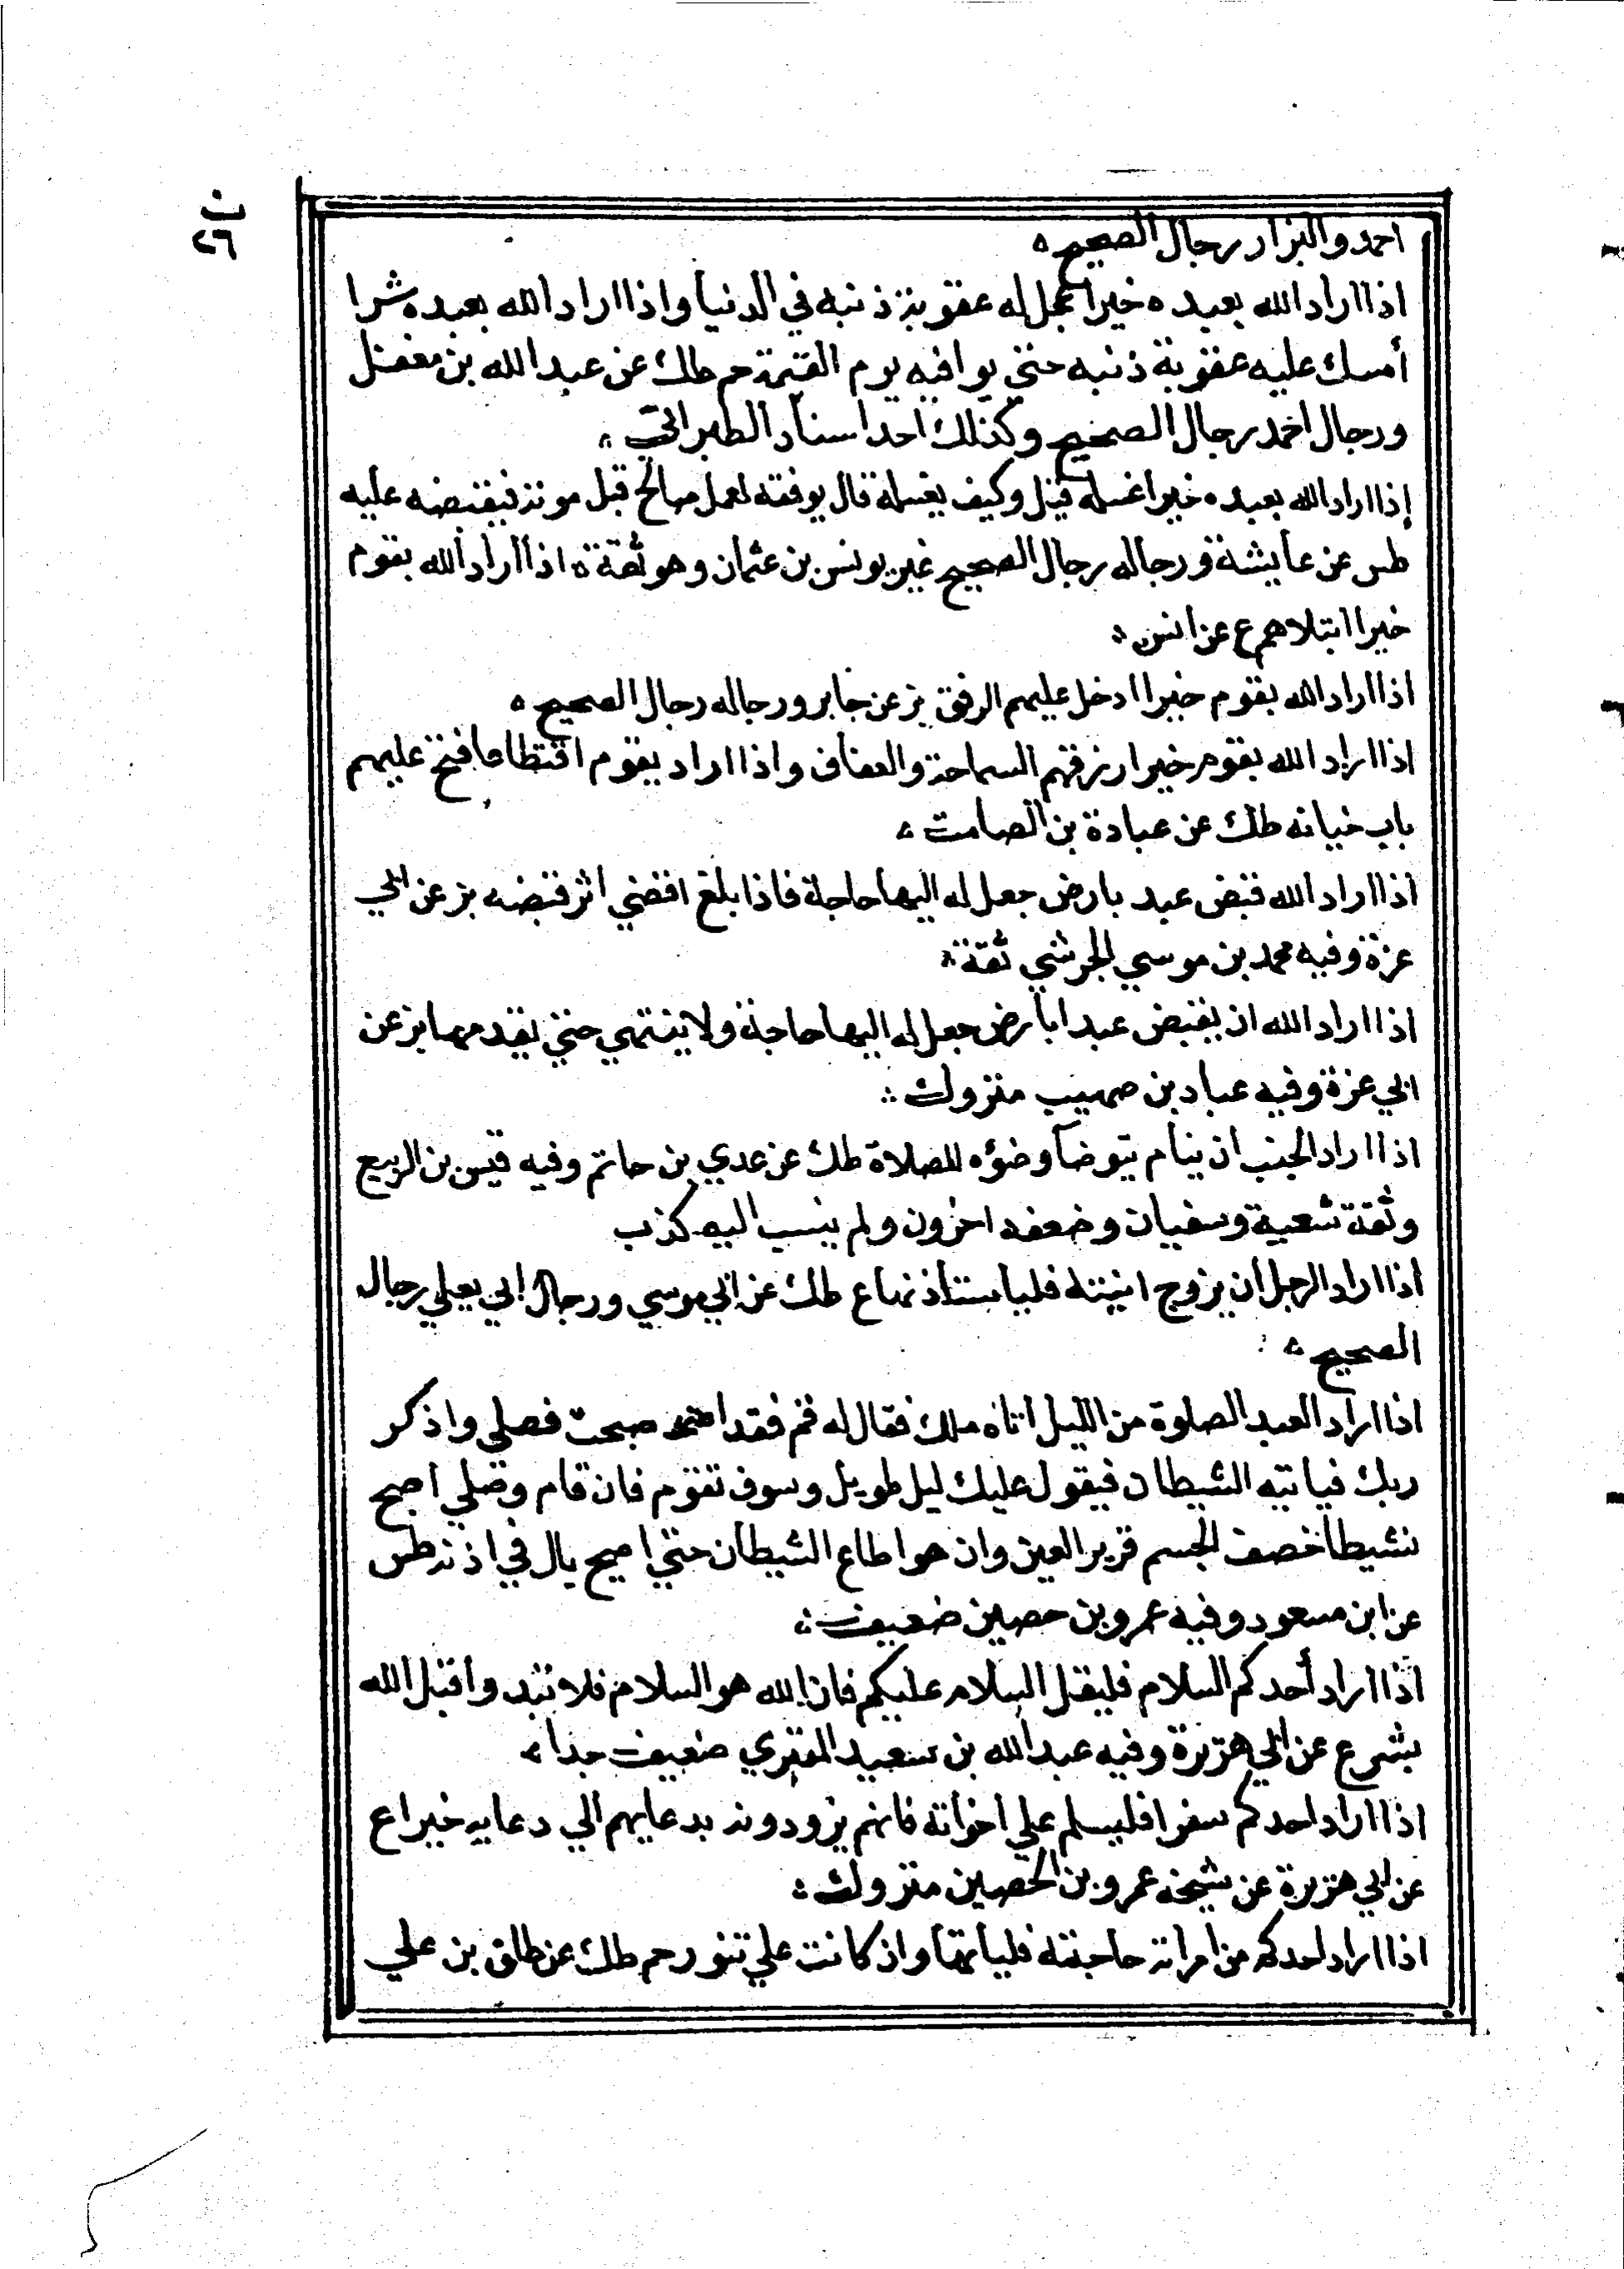 ن
٢٦
احمد والبزار رجال الصحيح ه
اذا اراد الله بعبده خيرا عجل له عقوبة ذنبه في الدنيا واذا اراد الله بعبده شرا
أمسك عليه عقوبة ذنبه حتي يوافيه يوم القيمة حم طك عن عبد الله بن مغفل
ورجال احمد رجال الصحيح وكذلك احد اسناد الطبراني ه
إذا اراد الله بعبده خيرا غسله قيل وكيف يغسله قال يوفقه لعمل صالح قبل موته فيقبضه عليه
طس عن عايشة ورجاله رجال الصحيح غير يونس بن عثمان وهو ثقة ه اذا اراد الله بقوم
خيرا ابتلاهم ع عن انس ه
اذا اراد الله بقوم خيرا ادخل عليهم الرفق بز عن جابر ورجاله رجال الصحيح ه
اذا اراد الله بقوم خيرا رزقهم السماحة والعفاف واذا اراد بقوم اقتطاعا فتح عليهم
باب خيانه طك عن عبادة بن الصامت ه
اذا اراد الله قبض عبد بارض جعل له اليها حاجة فاذا بلغ اقضي اثر قبضه بز عن ابي
عزة وفيه محمد بن موسي الجرشي ثقة ه
اذا اراد الله ان يقبض عبدا بارض جعل له اليها حاجة ولا ينتهي حتي يقدمها بز عن
ابي عزة وفيه عباد بن صهيب متروك ه
اذا اراد الجنب ان ينام يتوضا وضؤه للصلاة طك عن عدي بن حاتم وفيه قيس بن الربيع
وثقة شعبة وسفيان وضعفه اخرون ولم ينسب اليه كذب
اذا اراد الرجل ان يزوج ابنته فليأستأذنها ع طك عن ابي موسي ورجال ابي يعلي رجال
الصحيح ه
اذا اراد العبد الصلوة من الليل اتاه ملك فقال له قم فقد اصبحت فصلي واذكر
ربك فياتيه الشيطان فيقول عليك ليل طويل وسوف تقوم فان قام وصلي اصبح
نشيطا خصف الجسم قرير العين وان هو اطاع الشيطان حتي اصبح بال في اذنه طس
عن ابن مسعود وفيه عمرو بن حصين ضعيف ه
اذا اراد أحدكم السلام فليقل السلام عليكم فان الله هو السلام فلا تبد وا قبل الله
بشي ع عن ابي هريرة وفيه عبد الله بن سعيد المقبري ضعيف جدا ه
اذا اراد احدكم سفرا فليسلم علي اخوانه فانهم يزودونه بدعايهم الي دعايه خيرا ع
عن ابي هريرة عن شيخه عمرو بن الحصين متروك ه
اذا اراد احدكم من امراته حاجته فلياتها وان كانت علي تنور حم طك عن طلق بن علي